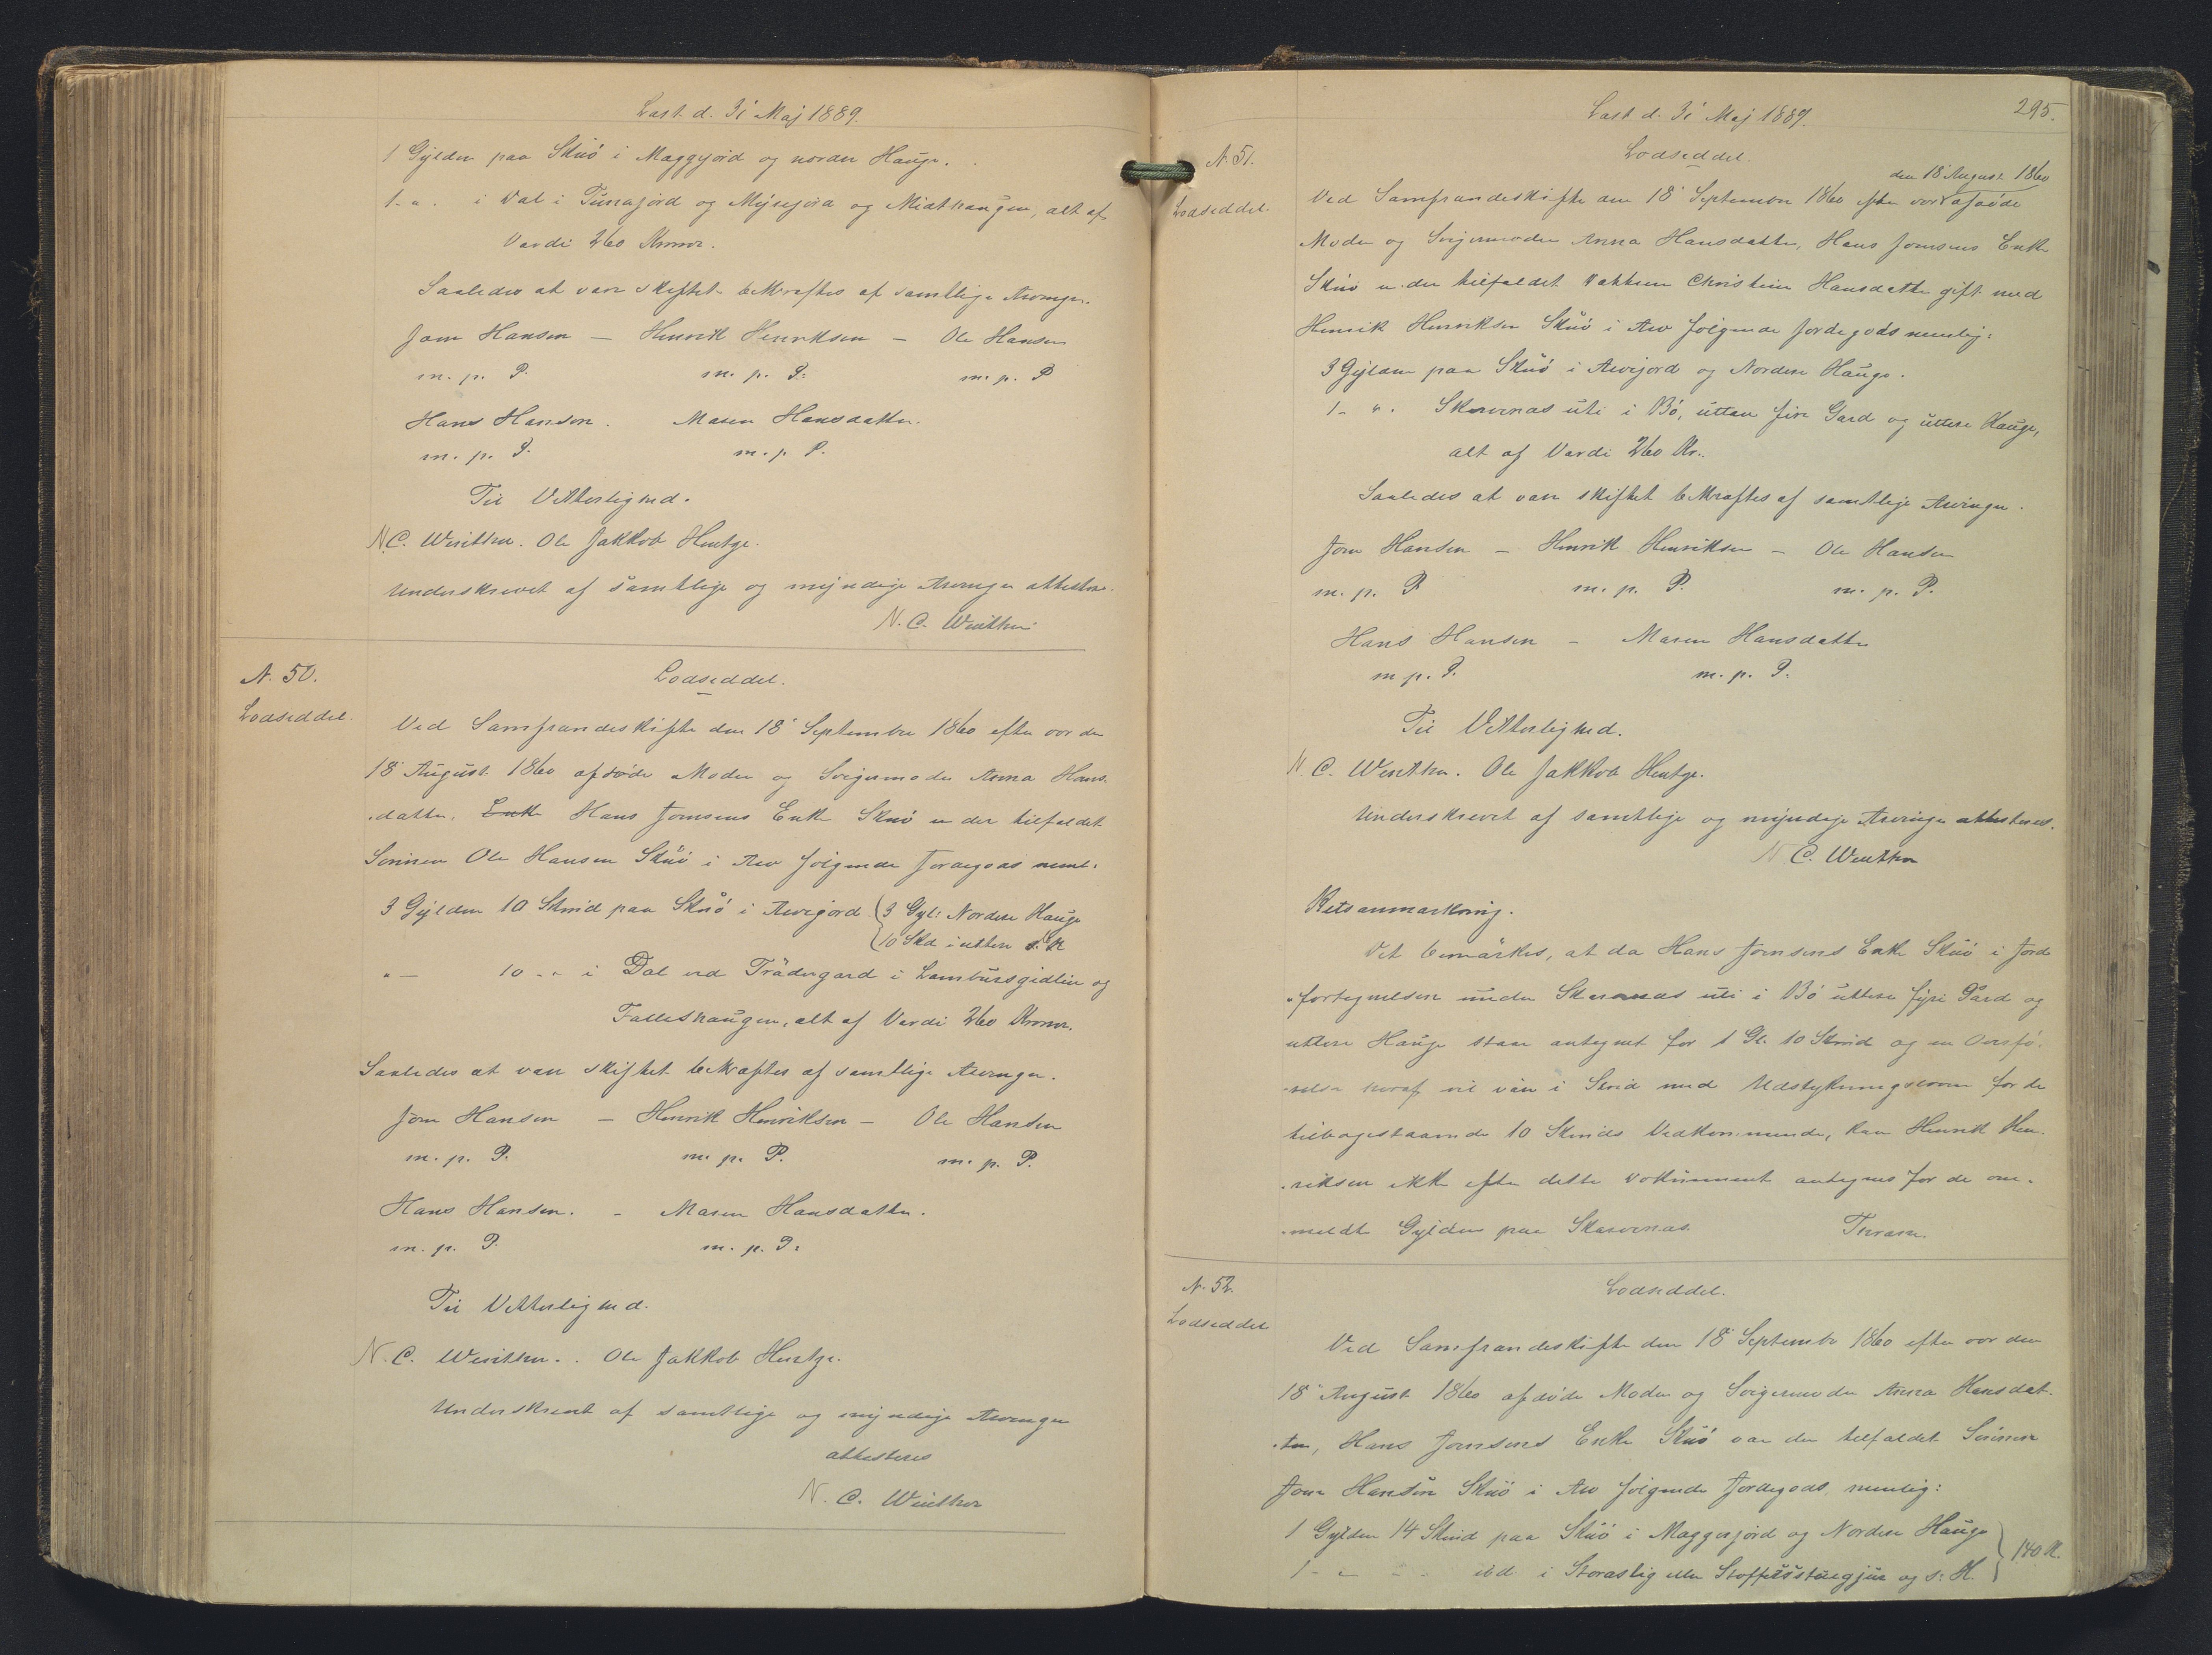 Læst d. 31 Maj 1889.
1 Gylden paa Skuö i Maggejord og nordre Hauge.
1 - " . i Dal i Tunajord og Myrejord og Midthaugen, alt af
Værdi 260 Kroner.
Saaledes at være skiftet bekræftes af samtlige Arvinger.
Joen Hansen — Henrik Henriksen — Ole Hansen
m. p. P. m. p. P. m. p. P
Hans Hansen. Maren Hansdatter.
m. p. P. m. p. P.
Til Vitterlighed.
N. C. Winther. Ole Jakkob Hentze.
Underskrevet af samtlige og myndige Arvinger attesteres.
N. C. Winther
N. 50.
Lodseddel.
Lodseddel.
Ved Samfrændeskifte den 18 September 1860 efter vor den
18 August 1860 afdöde Moder og Svigermoder Anna Hans-
datter, Enke Hans Joensens Enke Skuö er der tilfaldet
Sönnen Ole Hansen Skuö i Arv fölgende Jordegods neml:
3 Gylden 10 Skind paa Skuö i Arvejord (3 Gyl: Nordre Hauge
10 Skd i uttere d: H
" — 10 - " i Dal ved Trädergard i Lambursgidlir og
Falleshaugen, alt af Værdi 260 Kroner.
Saaledes at være skiftet bekræftes af samtlige Arvinger.
Joen Hansen — Henrik Henriksen — Ole Hansen
m. p. P. m. p. P. m. p. P.
Hans Hansen. - Maren Hansdatter.
m. p. P. m. p. P.
Til Vitterlighed.
N. C. Winther. . Ole Jakkob Hentze.
Underskrevet af samtlige og myndige Arvinger
attesteres
N. C. Winther
Læst d. 31 Maj 1889.
295.
N. 51.
Lodseddel.
Lodseddel.
den 18 August 1860
Ved Samfrændeskifte den 18 September 1860 efter vor afdöde
Moder og Svigermoder Anna Hansdatter, Hans Joensens Enke
Skuö er der tilfaldet Datteren Christine Hansdatter gift med
Henrik Henriksen Skuö i Arv fölgende Jordegods nemlig:
3 Gylden paa Skuö i Arvejord og Nordre Hauge.
1 - " . Skarvenas uti i Bö, uttere fire Gard og uttere Hauge,
alt af Værdi 260 Kr.
Saaledes at være skiftet bekræftes af samtlige Arvinger.
Joen Hansen — Henrik Henriksen — Ole Hansen
m. p. P. m. p. P. m. p. P.
Hans Hansen - Maren Hansdatter
m. p. P. m. p. P.
Til Vitterlighed.
N. C. Winther. Ole Jakkob Hentze.
Underskrevet af samtlige og myndige Arvinger attesteres.
N. C. Winther
Retsanmærkning.
Det bemærkes, at da Hans Joensens Enke Skuö i Jorde
fortegnelsen under Skarvenas uti i Bö uttere fyri Gard og
uttere Hauge staar antegnet for 1 Gl. 10 Skind og en Overfö-
relse heraf vil være i Strid med Udstykningsloven for de
tilbagestaaende 10 Skinds Vedkommende, kan Henrik Hen-
riksen ikke efter dette Dokument antegnes for de om-
meldte Gylden paa Skarvenas.
N. 52.
Lodseddel
Lodseddel.
Ved Samfrændeskifte den 18 September 1860 efter vor den
18 August 1860 afdöde Moder og Svigermoder Anna Hansdat-
ter, Hans Joensens Enke Skuö var der tilfaldet Sönnen
Joen Hansen Skuö i Arv fölgende Jordegods, nemlig:
1 Gylden 14 Skind paa Skuö i Maggejord og Nordre Hauge
1 - " - . ibd. i Storaslig eller og d: H. } 140 K.